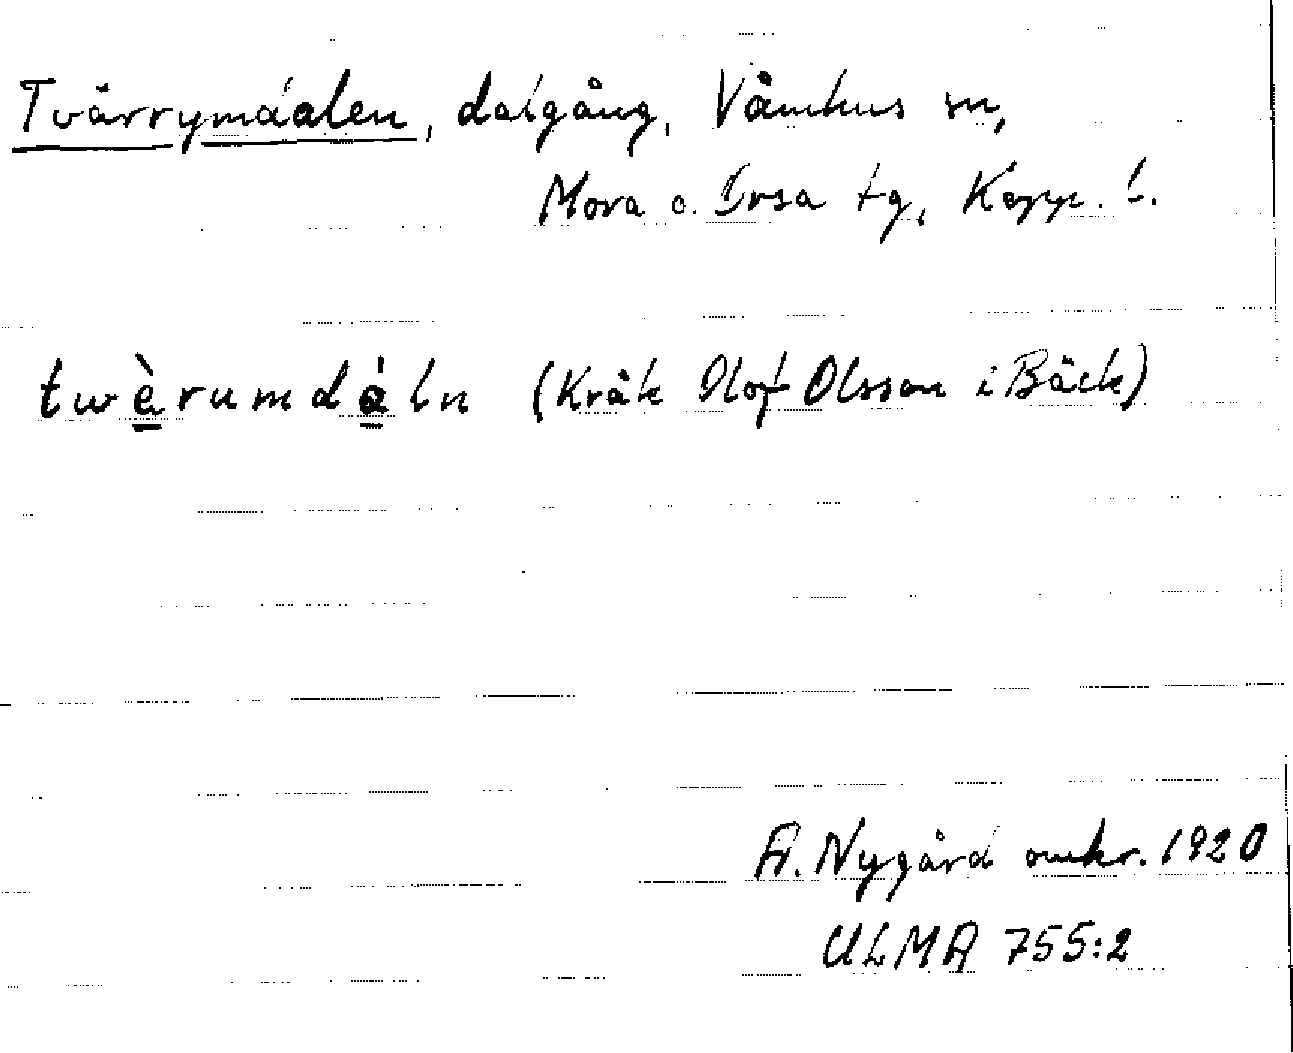 Tvärrymdalen, dalgång, Våmhus sn,
Mora o. Orsa tg, Kopp. l.
twèrumdáln (Kråk Olof Olsson i Bäck)
A. Nygård omkr. 1920
ULMA 755:2